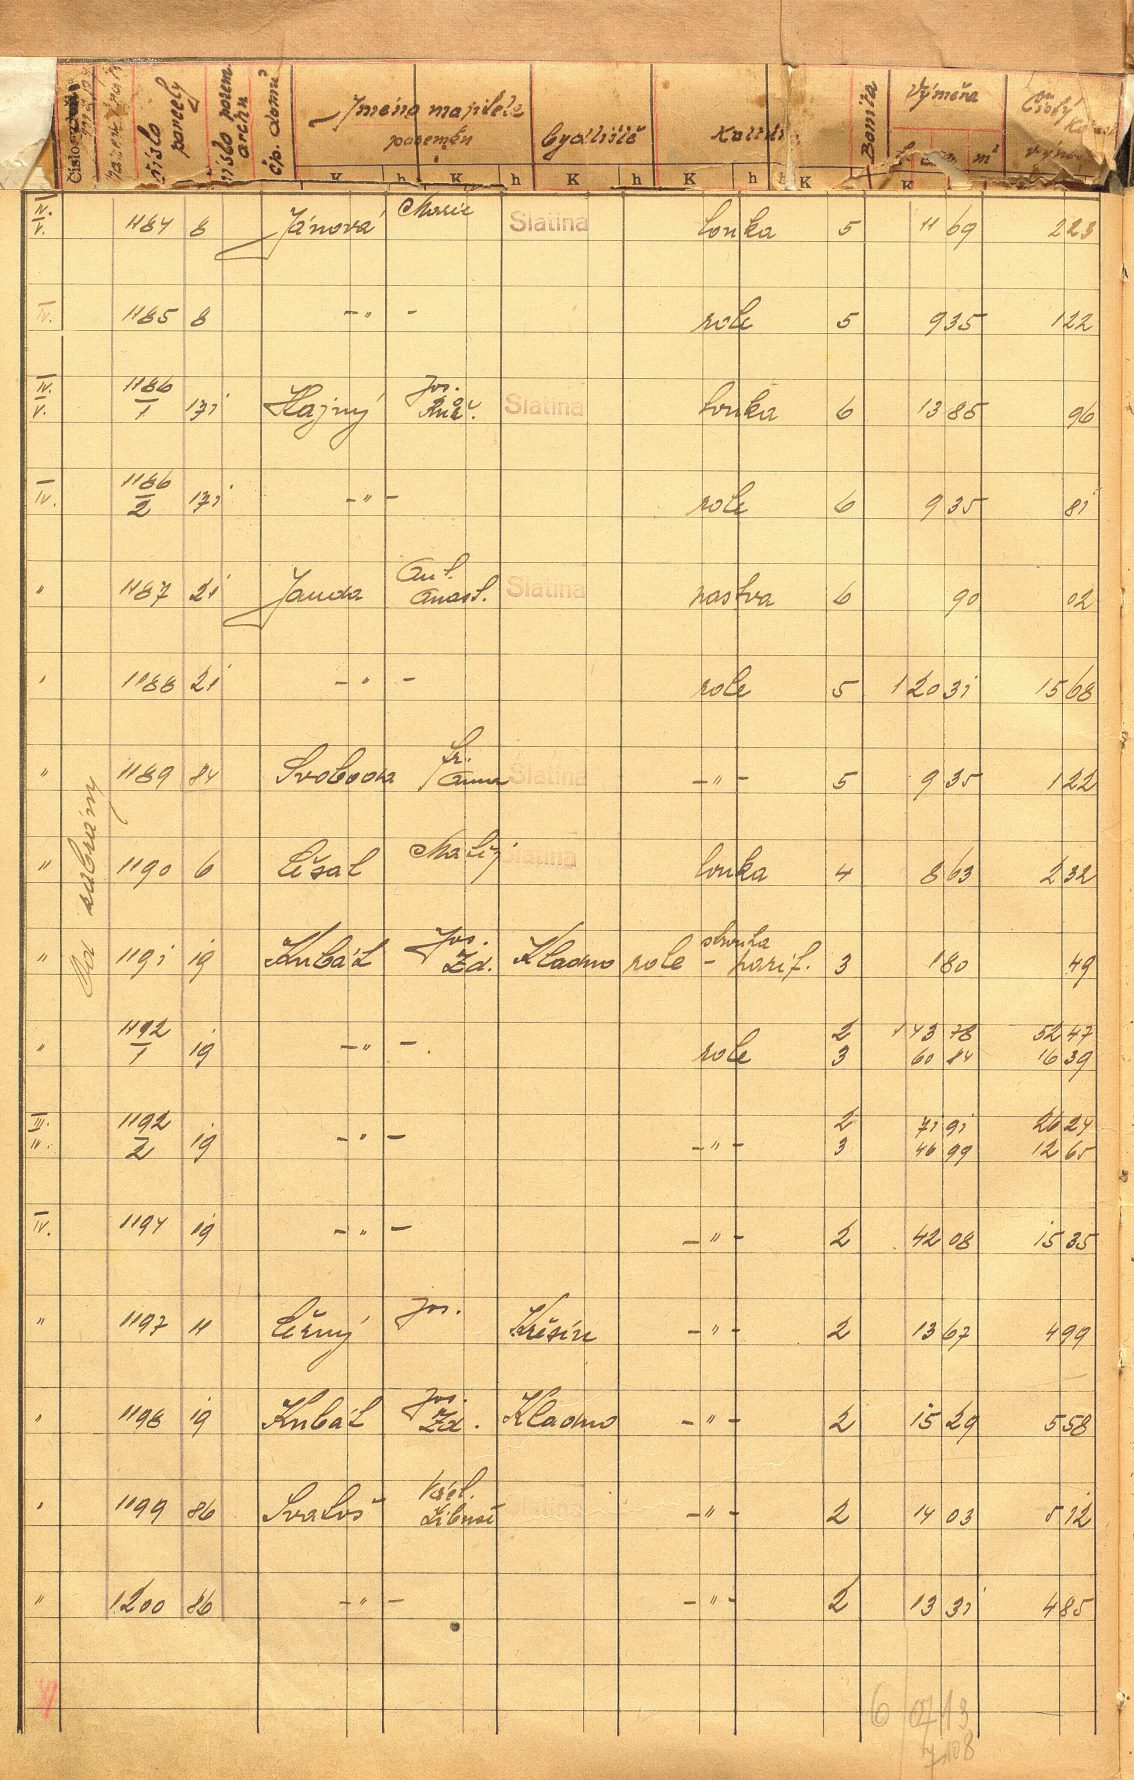 číslo parcely
číslo pozem. archu
čp. domu
Jméno majitele pozemku
bydliště
Kultura
Bonita
Výměra
m²
Čistý
K h K h K h K h K K
IV. V. 1184 8 Jánová Marie Slatina louka 5 11 69 2 23
IV. 1185 8 -"- role 5 9 35 1 22
IV. V. 1186/1 131 Hajný Jos. Růž. Slatina louka 6 13 85 96
IV. 1186/2 131 -"- role 6 9 35 81
" 1187 21 Janda Ant. Anast. Slatina pastva 6 90 02
" 1188 21 -"- role 5 1 20 31 15 68
" 1189 84 Svoboda Fr. Anna Slatina -"- 5 9 35 1 22
" 1190 6 Češal Matěj Slatina louka 4 8 63 2 32
" 1191 19 Kubát Jos. Zd. Kladno role - strouha parif. 3 1 80 49
" 1192/1 19 -"- role 2 1 43 78 52 47
3 60 84 16 39
III. IV. 1192/2 19 -"- -"- 2 71 91 26 24
3 46 99 12 65
IV. 1194 19 -"- -"- 2 42 08 15 35
" 1197 11 Černý Jos. Křesín -"- 2 13 67 4 99
" 1198 19 Kubát Jos. Zd. Kladno -"- 2 15 29 5 58
" 1199 86 Svatoš Václ. Libuše -"- 2 14 03 5 12
" 1200 86 -"- -"- 2 13 31 4 85
Od zábrany
6 07 13